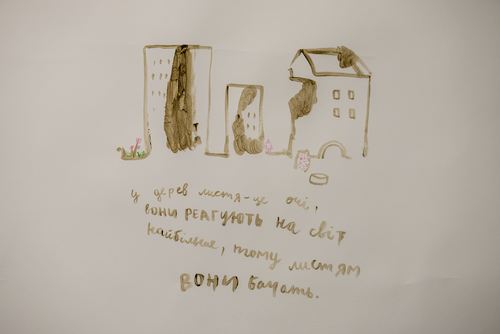 у дерев листя-це очі,
вони РЕАГУЮТЬ на світ
найбільше, тому листям
вони бачать.